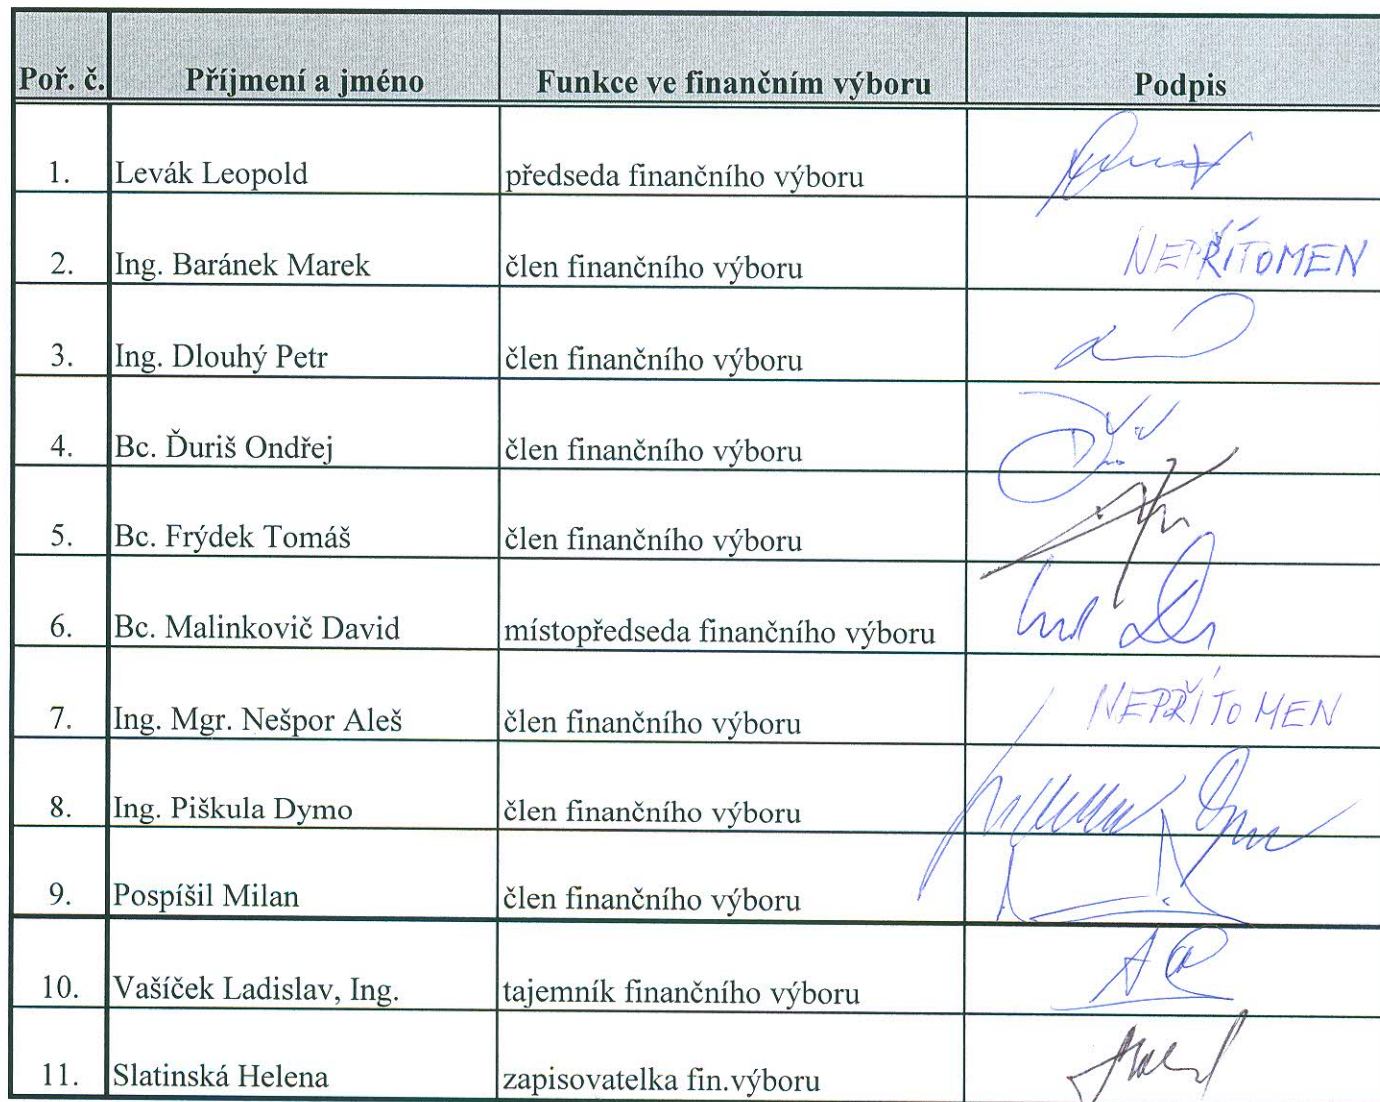 Poř. č. Příjmení a jméno Funkce ve finančním výboru Podpis
1. Levák Leopold předseda finančního výboru
2. Ing. Baránek Marek člen finančního výboru NEPŘÍTOMEN
3. Ing. Dlouhý Petr člen finančního výboru
4. Bc. Ďuriš Ondřej člen finančního výboru
5. Bc. Frýdek Tomáš člen finančního výboru
6. Bc. Malinkovič David místopředseda finančního výboru
7. Ing. Mgr. Nešpor Aleš člen finančního výboru NEPŘÍTOMEN
8. Ing. Piškula Dymo člen finančního výboru
9. Pospíšil Milan člen finančního výboru
10. Vašíček Ladislav, Ing. tajemník finančního výboru
11. Slatinská Helena zapisovatelka fin.výboru